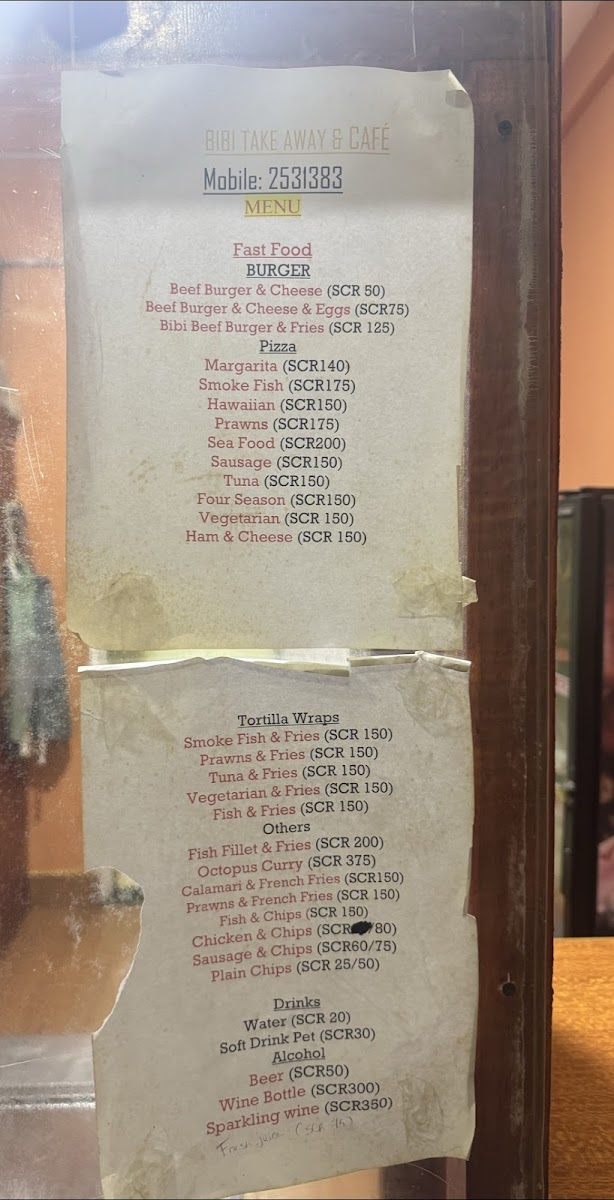 BIBI TAKE AWAY & CAFÉ
Mobile: 2531383
MENU
Fast Food
BURGER
Beef Burger & Cheese (SCR 50)
Beef Burger & Cheese & Eggs (SCR75)
Bibi Beef Burger & Fries (SCR 125)
Pizza
Margarita (SCR140)
Smoke Fish (SCR175)
Hawaiian (SCR150)
Prawns (SCR175)
Sea Food (SCR200)
Sausage (SCR150)
Tuna (SCR150)
Four Season (SCR150)
Vegetarian (SCR 150)
Ham & Cheese (SCR 150)
Tortilla Wraps
Smoke Fish & Fries (SCR 150)
Prawns & Fries (SCR 150)
Tuna & Fries (SCR 150)
Vegetarian & Fries (SCR 150)
Fish & Fries (SCR 150)
Others
Fish Fillet & Fries (SCR 200)
Octopus Curry (SCR 375)
Calamari & French Fries (SCR150)
Prawns & French Fries (SCR 150)
Fish & Chips (SCR 150)
Chicken & Chips (SCR /80)
Sausage & Chips (SCR60/75)
Plain Chips (SCR 25/50)
Drinks
Water (SCR 20)
Soft Drink Pet (SCR30)
Alcohol
Beer (SCR50)
Wine Bottle (SCR300)
Sparkling wine (SCR350)
Fresh juice (SCR